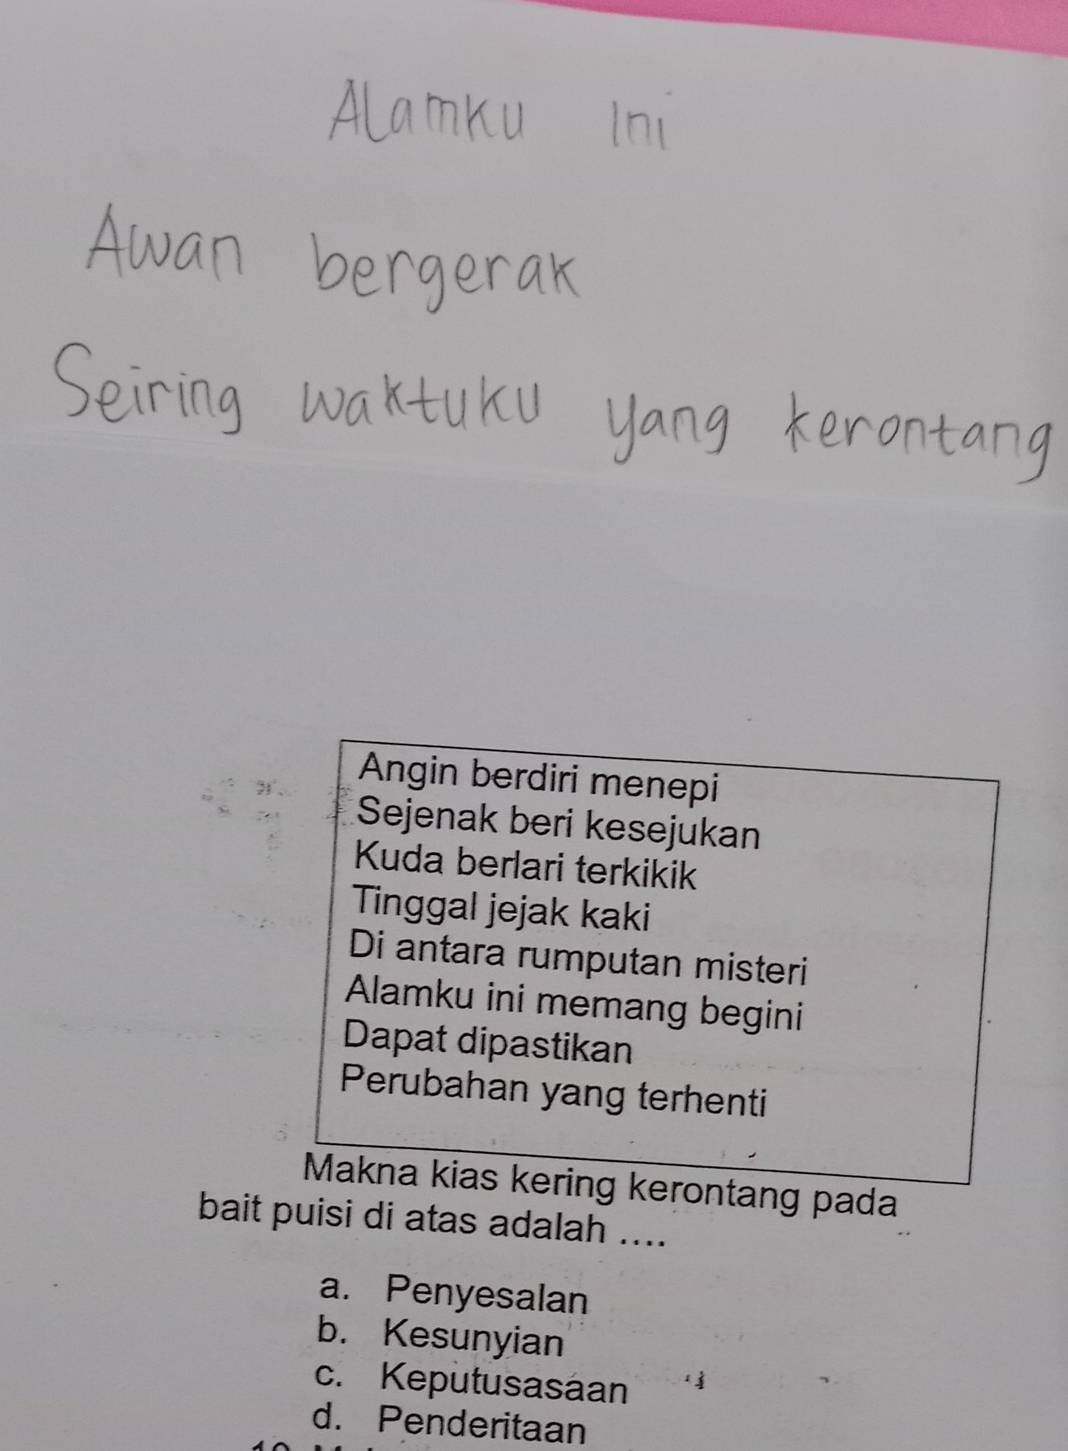 Alamku ini
Awan bergerak
Seiring waktuku yang kerontang
Angin berdiri menepi
Sejenak beri kesejukan
Kuda berlari terkikik
Tinggal jejak kaki
Di antara rumputan misteri
Alamku ini memang begini
Dapat dipastikan
Perubahan yang terhenti
Makna kias kering kerontang pada
bait puisi di atas adalah ....
a. Penyesalan
b. Kesunyian
c. Keputusasaan
d. Penderitaan